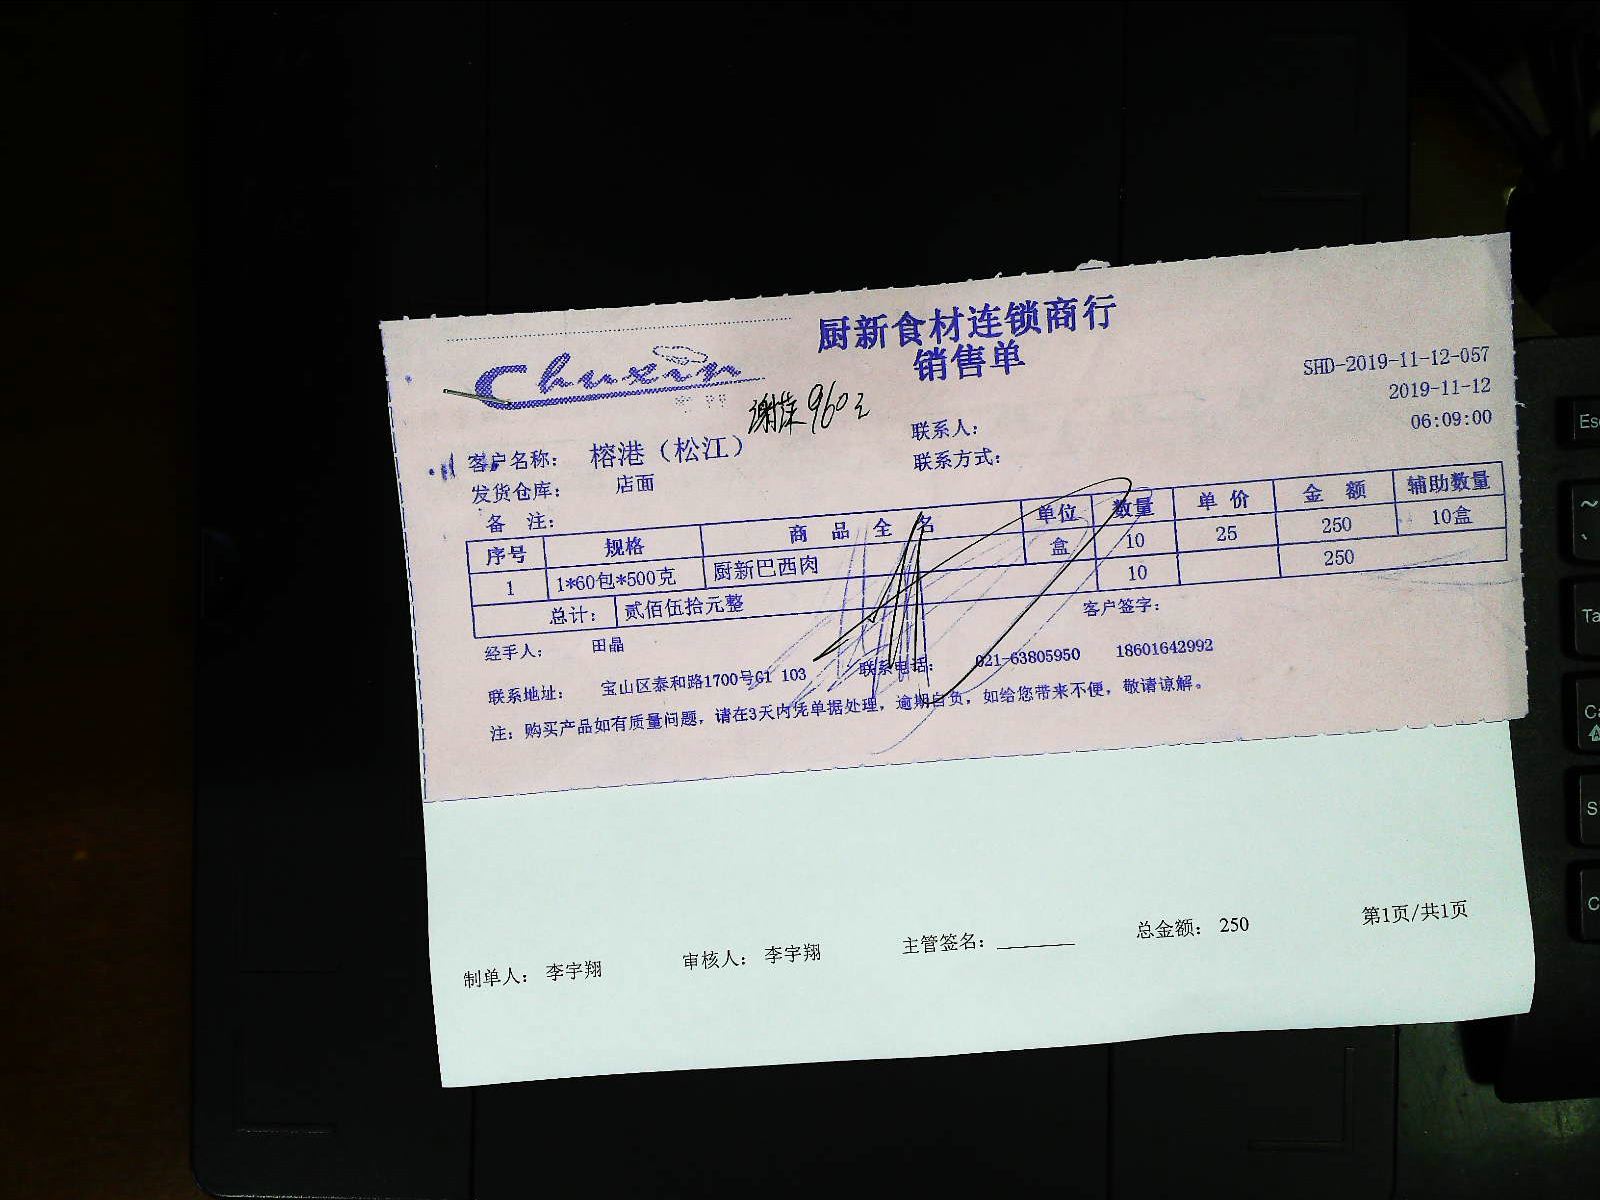 厨新食材连锁商行
Chuxin
销售单
SHD-2019-11-12-057
2019-11-12
06:09:00
960元
客户名称： 榕港（松江） 联系人：
发货仓库： 店面 联系方式：
备 注：
序号 规格 商品全名 单位 数量 单价 金额 辅助数量
1 1*60包*500克 厨新巴西肉 盒 10 25 250 10盒
总计： 贰佰伍拾元整 10 250
经手人： 田晶 客户签字：
联系地址： 宝山区泰和路1700号G1 103 联系电话： 021-63805950 18601642992
注：购买产品如有质量问题，请在3天内凭单据处理，逾期自负，如给您带来不便，敬请谅解。
制单人： 李宇翔 审核人： 李宇翔 主管签名： 总金额： 250 第1页/共1页
Esc
~